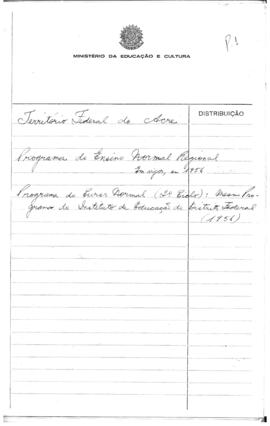 P1
MINISTÉRIO DA EDUCAÇÃO E CULTURA
DISTRIBUIÇÃO
Território Federal do Acre
Programa de Ensino Normal Regional
Em vigor, em 1956
Programa do Curso Normal (2º Ciclo): Pro-
grama do Instituto de Educação do Distrito Federal
(1956)